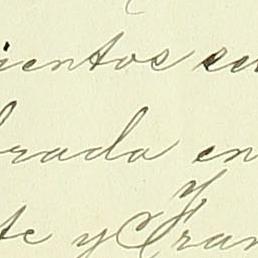 ientos se
brada en
te y Gran